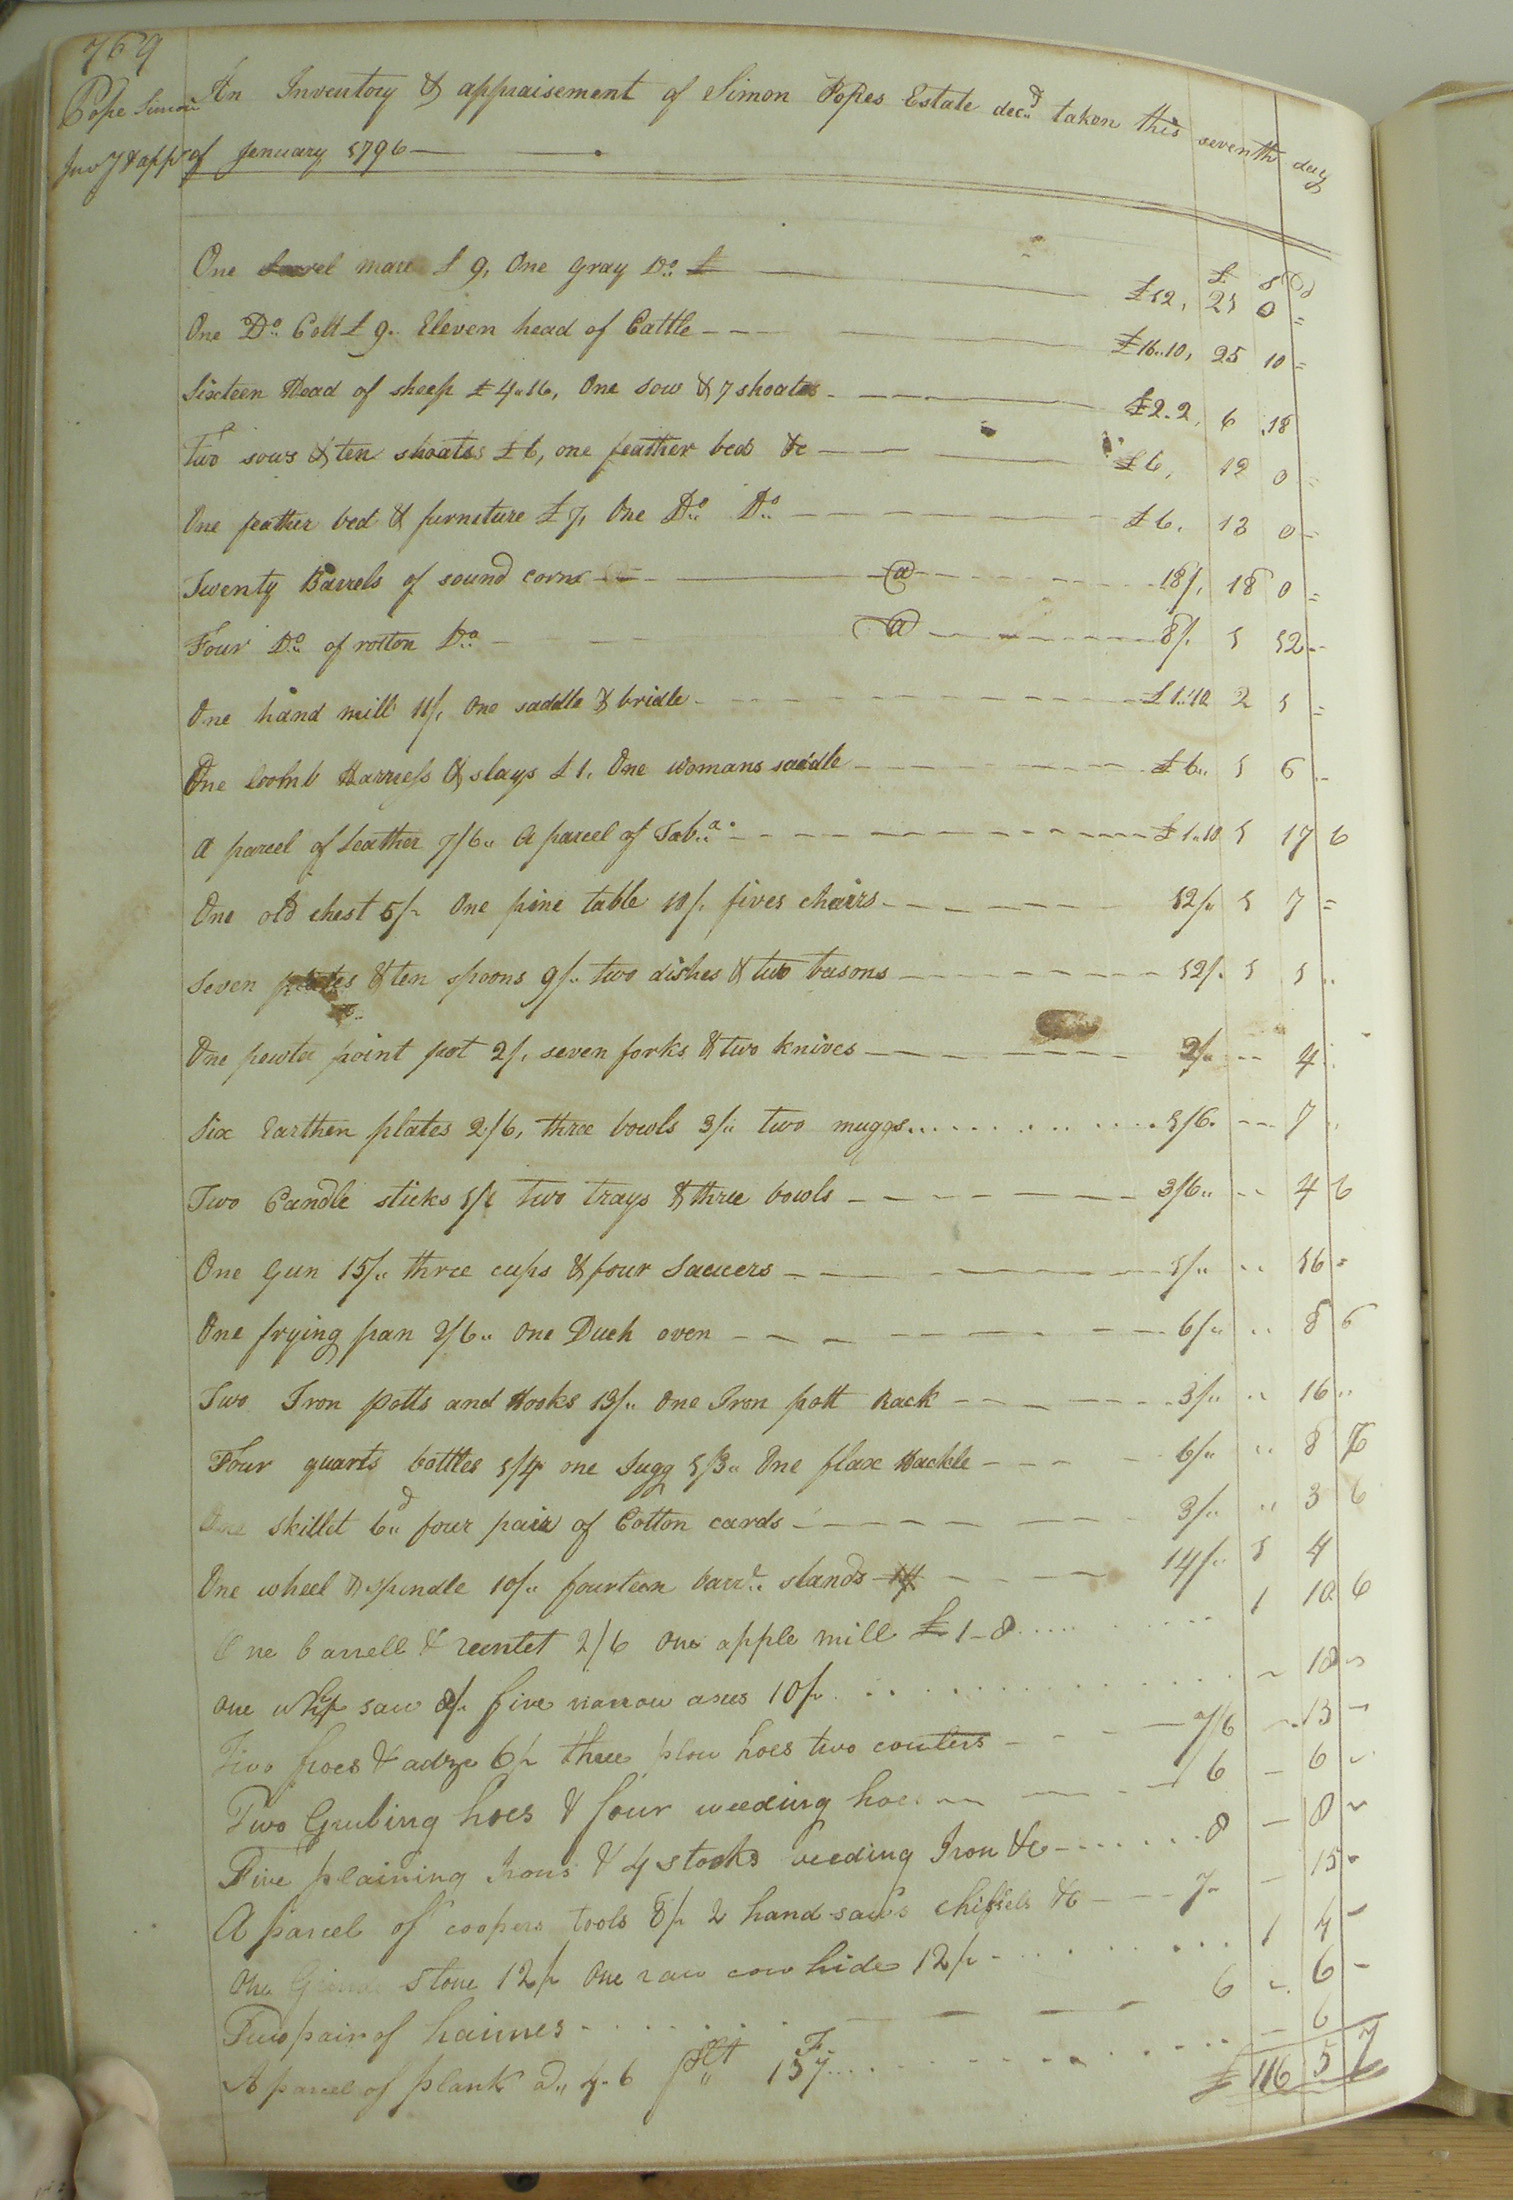 769
Pope Simon
Inv.y & app.r
An Inventory & appraisement of Simon Popes Estate dec.d taken this seventh day
of Jenuary 1796
£ s d
One Sorrel mare £ 9, One Gray Do. £ £12, 21 0 =
One Do. Colt £ 9. Eleven head of Cattle £16..10, 25 10 =
Sixteen Head of sheep £ 4..16, One Sow & 7 shoates £2..2, 6 18
Two sows & ten shoates £ 6, one feather bed &c £6, 12 0 =
One feather bed & furneture £ 7, One Do. Do. £6. 13 0 =
Twenty Barrels of sound corn @ 18/, 18 0 =
Four Do. of rotton Do. @ 8/. 1 12 ..
One hand mill 11/, One saddle & bridle £1..10 2 1 =
One loomb Harness & slays £ 1. One womans saddle £6.. 1 6 ..
A parcel of Leather 7/6.. A parcel of Tob.a £1..10 1 17 6
One old chest 5/. One pine table 10/. fives chairs 12/. 1 7 =
Seven plates & ten spoons 9/.. two dishes & two basons 12/. 1 1 ..
One pewter point pot 2/. seven forks & two knives 2/.. .. 4 ..
Six Earthen plates 2/6, three bowls 3/.. two muggs 1/6. .. 7 ..
Two Candle sticks 1/. two trays & three bowls 3/6.. .. 4 6
One Gun 15/.. three cups & four Saucers 1/.. .. 16 =
One frying pan 2/6.. One Duch oven 6/.. .. 8 6
Two Iron Potts and Hooks 13/.. One Iron pott Rack 3/.. .. 16 ..
Four quarts bottles 1/4 one Jugg 1/3.. One flax Hackle 6/.. .. 8 7
One skillet 6d.. four pair of Cotton cards 3/.. .. 3 6
One wheel & spindle 10/.. fourteen barr.l stands 14/.. 1 4
One barrell & 2/6 One apple mill £ 1-8 1 10 6
One whip saw 8/. five narrow axes 10/. 18
Two froes & adze 6/. three plow hoes two coulters 7/6 13
Two Grubing hoes & four weeding hoes 6 6
Five plaining Irons & 4 stocks Iron &c 8 8
A parcel of coopers tools 8/. 2 hand saws chissels &c 7 15
One stone 12/. One raw cow hide 12/. 1 4
Two pair of haimes 6 6
A parcel of plank 6
£ 116 5 7